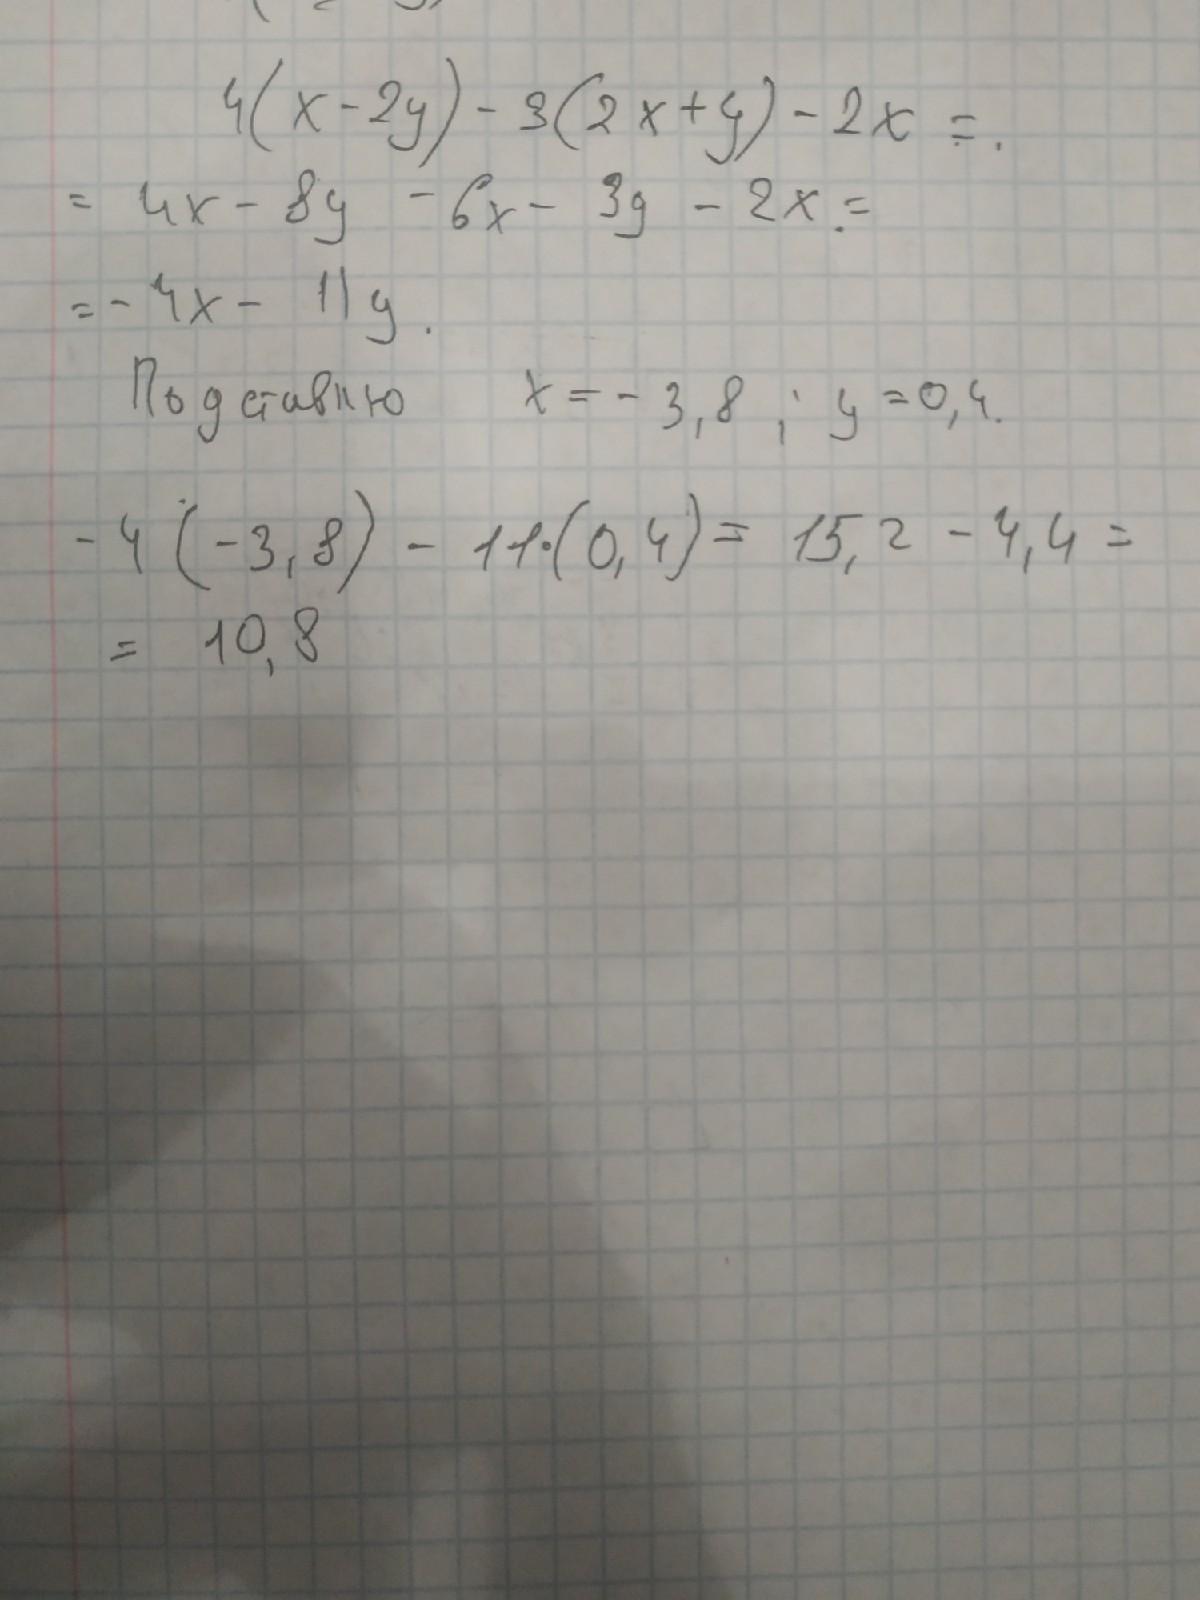 4(x-2y)-3(2x+y)-2x=.
= 4x-8y -6x- 3y -2x.=
=-4x- 11y.
Подставлю x=-3,8 ; y=0,4.
-4(-3,8)-11·(0,4)= 15,2-4,4=
= 10,8